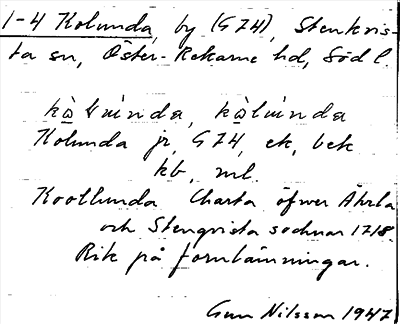 1-4 Kolunda, by (GZH), Stenkvis-
ta sn, Öster-Rekarne hd, Södl.
Kolunda jr, GZH, ek, bek
kb, ml.
Koollunda Charta öfwer Åhrla
och Stenqvista sochnar 1718.
Rik på fornlämningar.
Gun Nilsson 1947